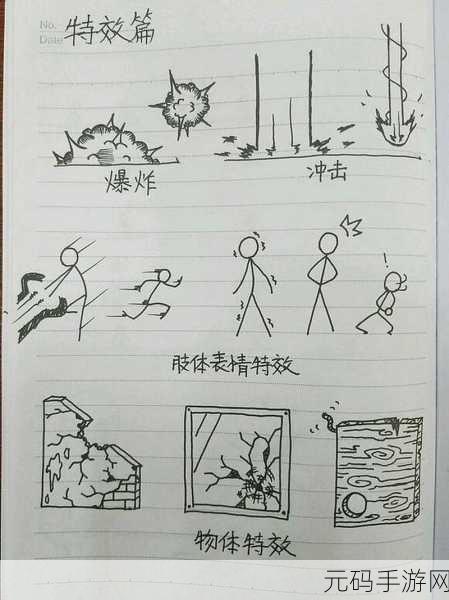 No.
Date
特效篇
爆炸
冲击
!
肢体表情特效
物体特效
元码手游网